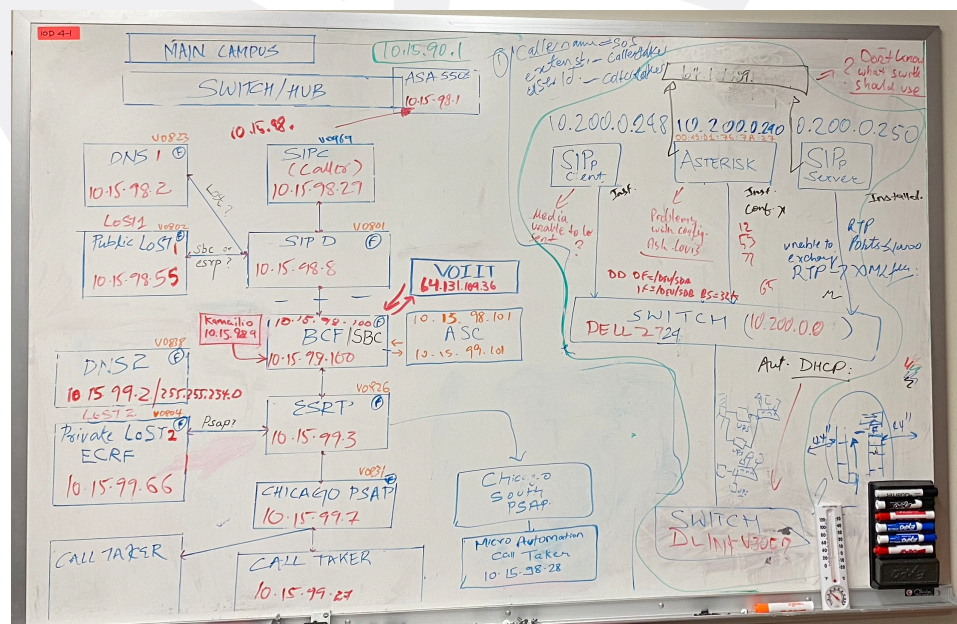 10D 4-1
MAIN CAMPUS
10.15.90.1
SWITCH/HUB
ASA 5505
10.15.98.1
10.15.98.
V0823
DNS 1
10.15.98.2
V0969
SIPC
(Caller)
10.15.98.27
LoST1
V0802
Public LoST1
10.15.98.55
Sbc or
esrp?
V0801
SIPD
10.15.98.8
VOIIT
64.131.109.36
Kamailio
10.15.98.9
10.15.98.100
BCF/SBC
10.15.99.100
10.15.98.101
ASC
10.15.99.101
DNS 2
10.15.99.2/255.255.254.0
LoST2
V0804
Private LoST2
ECRF
10.15.99.66
Psap?
V0826
ESRP
10.15.99.3
V0831
CHICAGO PSAP
10.15.99.7
CALL TAKER
CALL TAKER
10.15.99.27
Chicago
South
PSAP
Micro Automation
Call Taker
10.15.98.28
① Callername = SOS
Don't know
what switch
should use
10.200.0.248
10.200.0.240
0.200.0.250
SIPp
Client
ASTERISK
SIPp
Server
Inst.
Inst.
Conf.
Installed.
Media
unable to be
sent
?
Problems
with config.
Ask Louis
12
53
77
65
RTP
unable to
RTP
DD OF=/DEV/SDA
IF=/DEV/SDB BS=32K
SWITCH (10.200.0.0)
DELL 2724
Aut. DHCP:
24"
24"
SWITCH